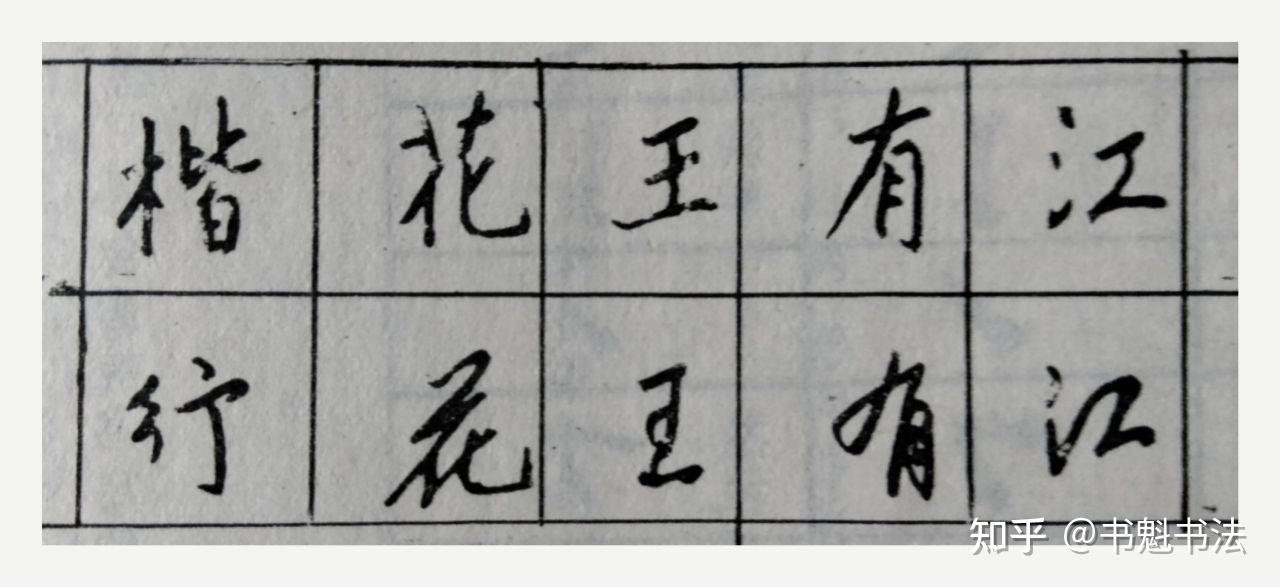 楷 花 王 有 江
行 花 王 有 江
知乎 @书魁书法